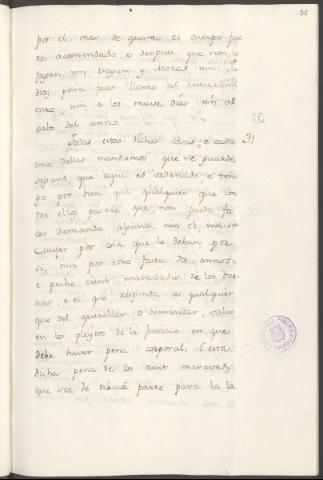 36
por el mar de quanto el cuerpo fue
re acomendado e despues que non lo
fagan, nin trayan y Mozas nin
dias para facer llanto al enterrami
ento, nin a los nueve dias nin al
cabo del anno
Todas estas dichas cosas, e cada 31
una dellas mandamos que se guarde
segunt que aqui es ordenado e ten
go por bien que qualquier que con
tra ello pasare que non pueda fa
cer demanda alguna nin el nin su
Muger por cosa que le deban por
si, nin por otro fasta dos annos,
e peche cient maravedis de los bue
nos, e el que responda a qualquier
que del querellar o demandar, salvo
en los pleytos de la justicia en que
debe haver pena corporal, e esta
dicha pena de los cient maravedis
que sea la tercia parte para la la